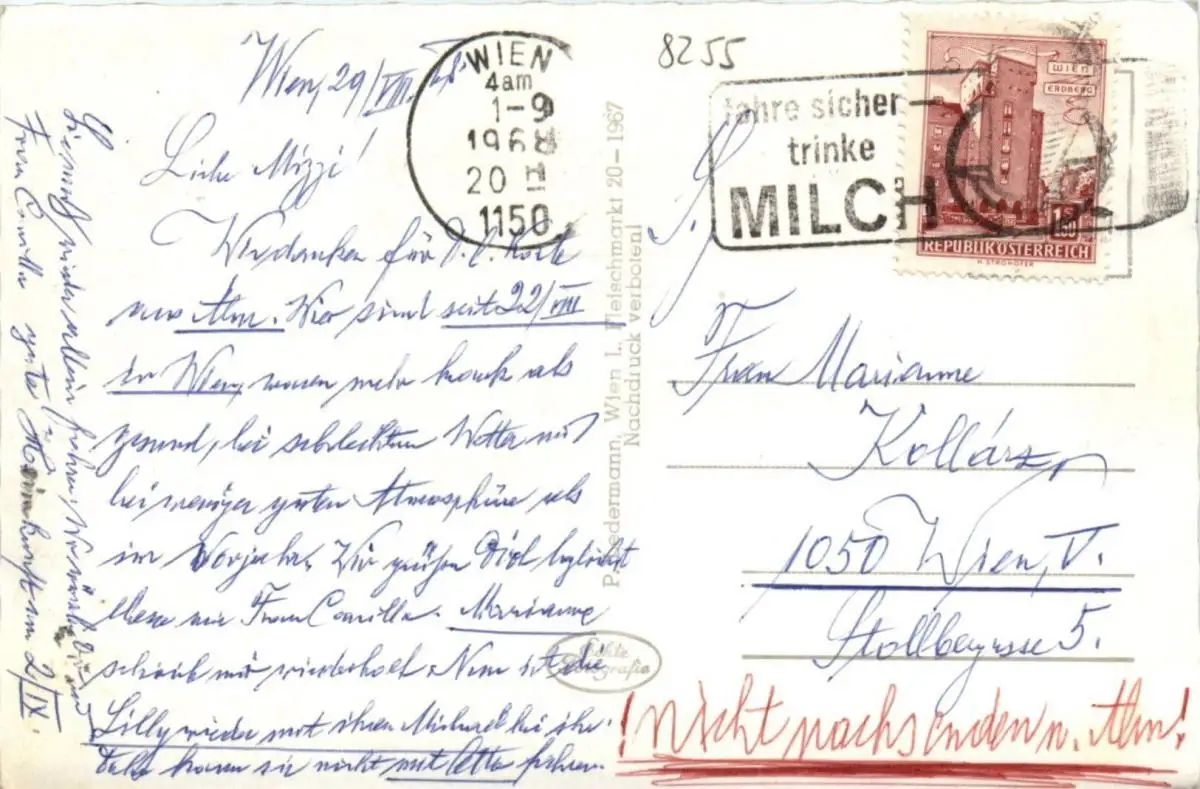 Wien, 29/VIII. 68
Liebe Mizzi!
Wir danken für D. l. Karte
aus Alm. Wir sind seit 22/VIII
in Wien, waren mehr krank als
gesund, bei schlechtem Wetter und
bei weniger guten Atmosphäre als
im Vorjahr. Wir grüßen Dich
Frau Camilla. Marianne
schrieb mir wiederholt. Nun ist die
Lilly wieder mit ihrem Michael bei ihr.
kann sie nicht mit Otto fahren.
Sie muß wieder allein fahren. Wir
Frau Camilla gute Heimkunft am 2/IX.
WIEN
4am
1-9
1968
20 H
1150
8255
Jahre sicher
trinke
MILCH
WIEN
ERDBERG
1.50
REPUBLIK ÖSTERREICH
H. STROHOFER
P. Ledermann, Wien I., Fleischmarkt 20 - 1967
Nachdruck verboten!
Echte
Fotografie
S.
Frau Marianne
Kollárz
1050 Wien, V.
Stollberggasse 5.
! Nicht nachsenden n. Alm!